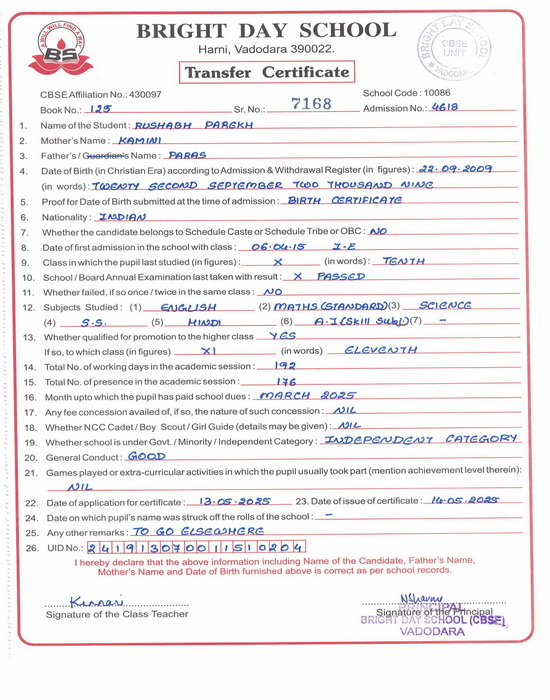 A WILL WILL FIND A WAY
BS
BRIGHT DAY SCHOOL
Harni, Vadodara 390022.
BRIGHT DAY SCHOOL
CBSE
UNIT
VADODAR
Transfer Certificate
CBSE Affiliation No.: 430097
School Code : 10086
Book No.: 125 Sr. No.: 7168 Admission No.: 4618
1. Name of the Student : RUSHABH PAREKH
2. Mother's Name : KAMINI
3. Father's / Guardian's Name : PARAS
4. Date of Birth (in Christian Era) according to Admission & Withdrawal Register (in figures) : 22.09.2009
(in words) : TWENTY SECOND SEPTEMBER TWO THOUSAND NINE
5. Proof for Date of Birth submitted at the time of admission : BIRTH CERTIFICATE
6. Nationality : INDIAN
7. Whether the candidate belongs to Schedule Caste or Schedule Tribe or OBC : NO
8. Date of first admission in the school with class : 06.04.15 I-E
9. Class in which the pupil last studied (in figures) : X (in words) : TENTH
10. School / Board Annual Examination last taken with result : X PASSED
11. Whether failed, if so once / twice in the same class : NO
12. Subjects Studied : (1) ENGLISH (2) MATHS (STANDARD) (3) SCIENCE
(4) S.S. (5) HINDI (6) A.I (Skill Subj.) (7) -
13. Whether qualified for promotion to the higher class YES
If so, to which class (in figures) XI (in words) ELEVENTH
14. Total No. of working days in the academic session : 192
15. Total No. of presence in the academic session : 176
16. Month upto which the pupil has paid school dues : MARCH 2025
17. Any fee concession availed of, if so, the nature of such concession : NIL
18. Whether NCC Cadet / Boy Scout / Girl Guide (details may be given) : NIL
19. Whether school is under Govt. / Minority / Independent Category : INDEPENDENT CATEGORY
20. General Conduct : GOOD
21. Games played or extra-curricular activities in which the pupil usually took part (mention achievement level therein) :
NIL
22. Date of application for certificate : 13.05.2025 23. Date of issue of certificate : 14.05.2025
24. Date on which pupil's name was struck off the rolls of the school : -
25. Any other remarks : TO GO ELSEWHERE
26. UID No.: 241913070011510204
I hereby declare that the above information including Name of the Candidate, Father's Name,
Mother's Name and Date of Birth furnished above is correct as per school records.
Signature of the Class Teacher
Signature of the Principal
PRINCIPAL
BRIGHT DAY SCHOOL (CBSE)
VADODARA